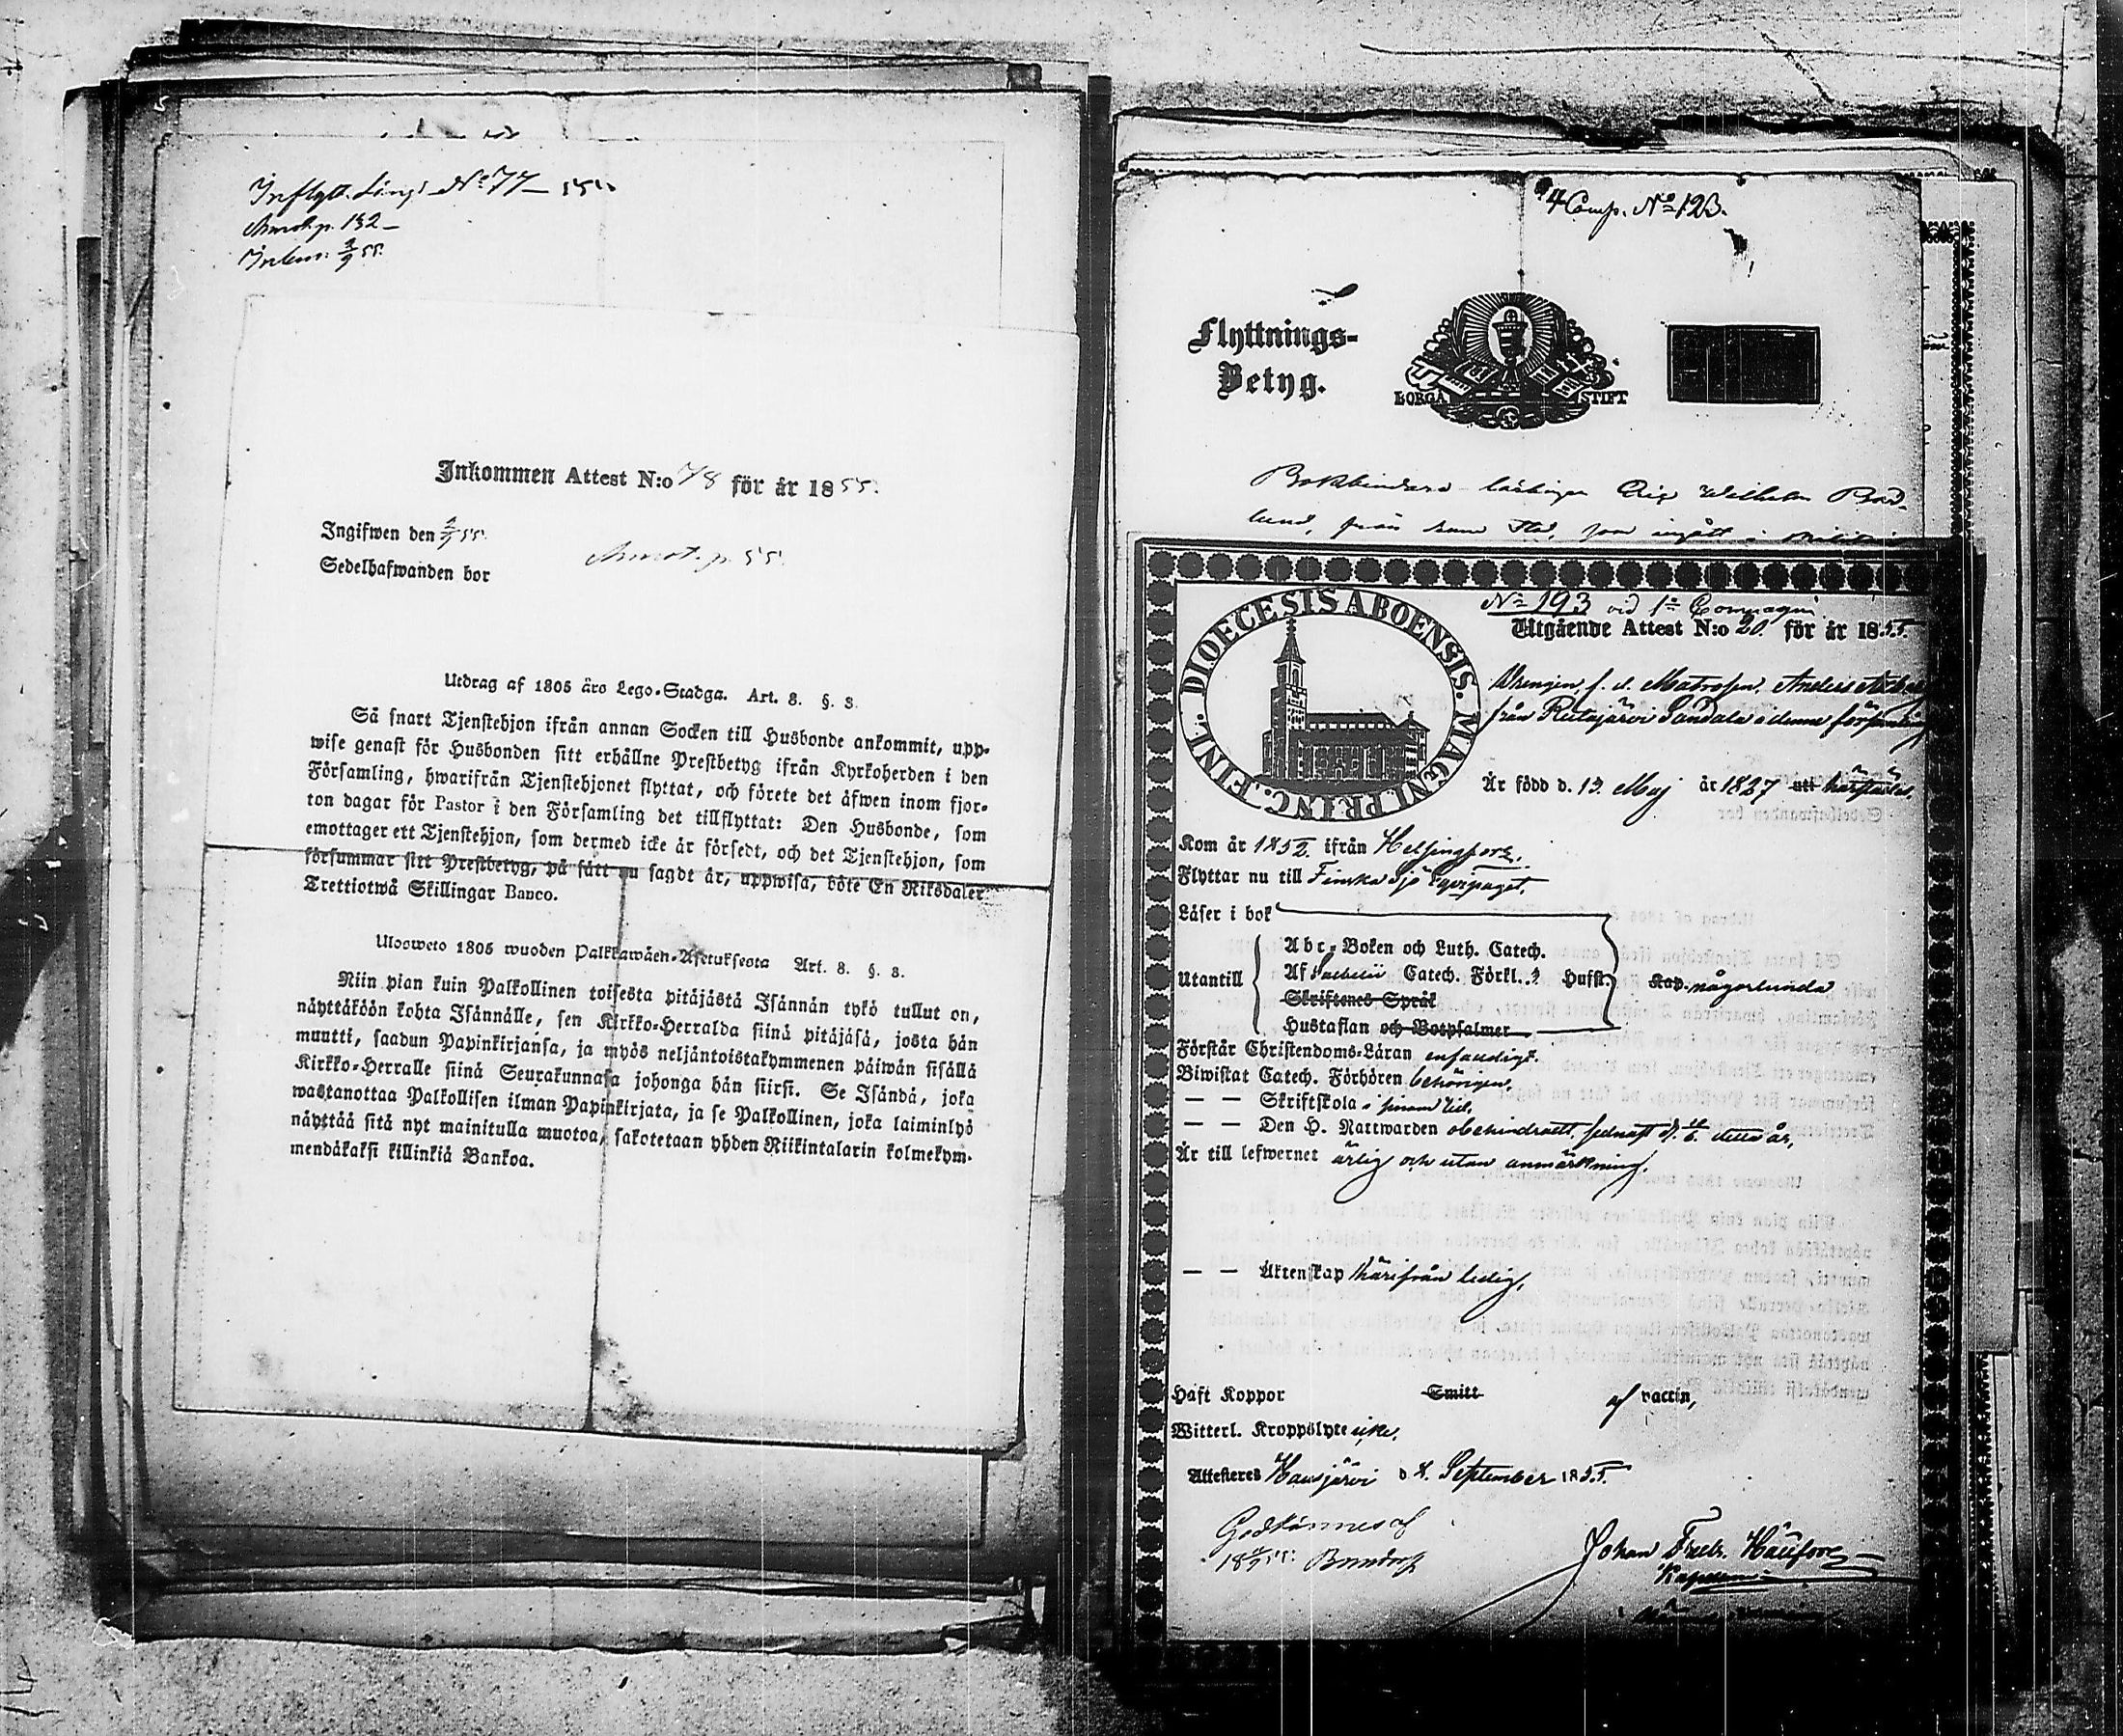 Inflytt. Läng: No 77 – 55.
p. 132 –
Inkom: 3/9 55.
Inkommen Attest N:o 78 för år 1855.
Ingifwen den 3/9 55.
Sedelhafwanden bor
p. 55.
Utdrag af 1805 års Lego-Stadga. Art. 8. §. 3.
Så snart Tjenstehjon ifrån annan Socken till Husbonde ankommit, upp-
wise genast för Husbonden sitt erhållne Prestbetyg ifrån Kyrkoherden i den
Församling, hwarifrån Tjenstehjonet flyttat, och förete det äfwen inom fjor-
ton dagar för Pastor i den Församling det tillflyttat: Den Husbonde, som
emottager ett Tjenstehjon, som dermed icke är försedt, och det Tjenstehjon, som
försummar sitt Prestbetyg, på sätt nu sagdt är, uppwisa, böte En Riksdaler
Trettiotwå Skillingar Banco.
Ulosweto 1805 wuoden Palkkawäen-Asetuksesta Art. 8. §. 3.
Niin pian kuin Palkollinen toisesta pitäjästä Isännän tykö tullut on,
näyttäköön kohta Isännälle, sen Kirkko-Herralda siinä pitäjäsä, josta hän
muutti, saadun Papinkirjansa, ja myös neljäntoistakymmenen päiwän sisällä
Kirkko-Herralle siinä Seurakunnasa johonga hän siirsi. Se Isändä, joka
wastanottaa Palkollisen ilman Papinkirjata, ja se Palkollinen, joka laiminlyö
näyttää sitä nyt mainitulla muotoa, sakotetaan yhden Riikintalarin kolmekym-
mendäkaksi killinkiä Bankoa.
4 Comp. No 123.
Flyttnings-
Betyg.
BORGÅ STIFT
Bokbindare lärlingen Eric Wilhelm Bord-
lund, från Stad, som ingått i
DIOECESIS ABOENSIS. MAGNI. PRINC. FINL.
No 193 vid 1a Compagni
Utgående Attest N:o 20. för år 1855.
Drengen, f. d. Matrosen, Anders
från Ristajärvi Sandala i denna församling
Är född d. 13. Maj år 1827 utt härstädes.
Kom år 1852. ifrån Helsingfors.
Flyttar nu till Finska Sjö Equipaget.
Läser i bok
Utantill
Abc-Boken och Luth. Catech.
Af Sebelii Catech. Förkl. Husft.
Skriftenes Språk
Hustaflan och Botpsalmer
Kap. någorlunda
Förstår Christendoms-Läran enfaldigt.
Biwistat Catech. Förhören behörigen,
— — Skriftskola i sinom tid,
— — Den H. Nattwarden obehindradt, sednast d. 10/6 detta år,
Är till lefwernet ärlig och utan anmärkning.
— — Äktenskap härifrån ledig,
Haft Koppor Smitt af vaccin,
Witterl. Kroppslyte icke.
Attesteres Hausjärvi d. 4. September 1855.
Godkännes af
Bonsdorff
Johan Fredr. Häufors
Kapellan